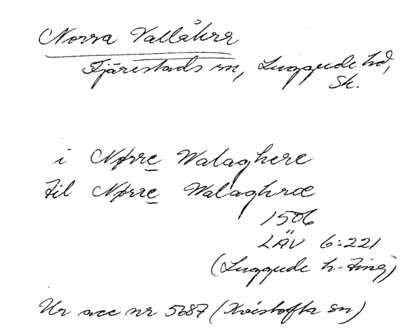 Norra Vallåkra
Fjärestads sn, Luggude hd,
Sk.
i Nørre Walaghere
til Nørre Walaghræ
1506
LÄU 6:221
(Luggude h-ting)
Ur acc nr 5687 (Kvistofta sn)